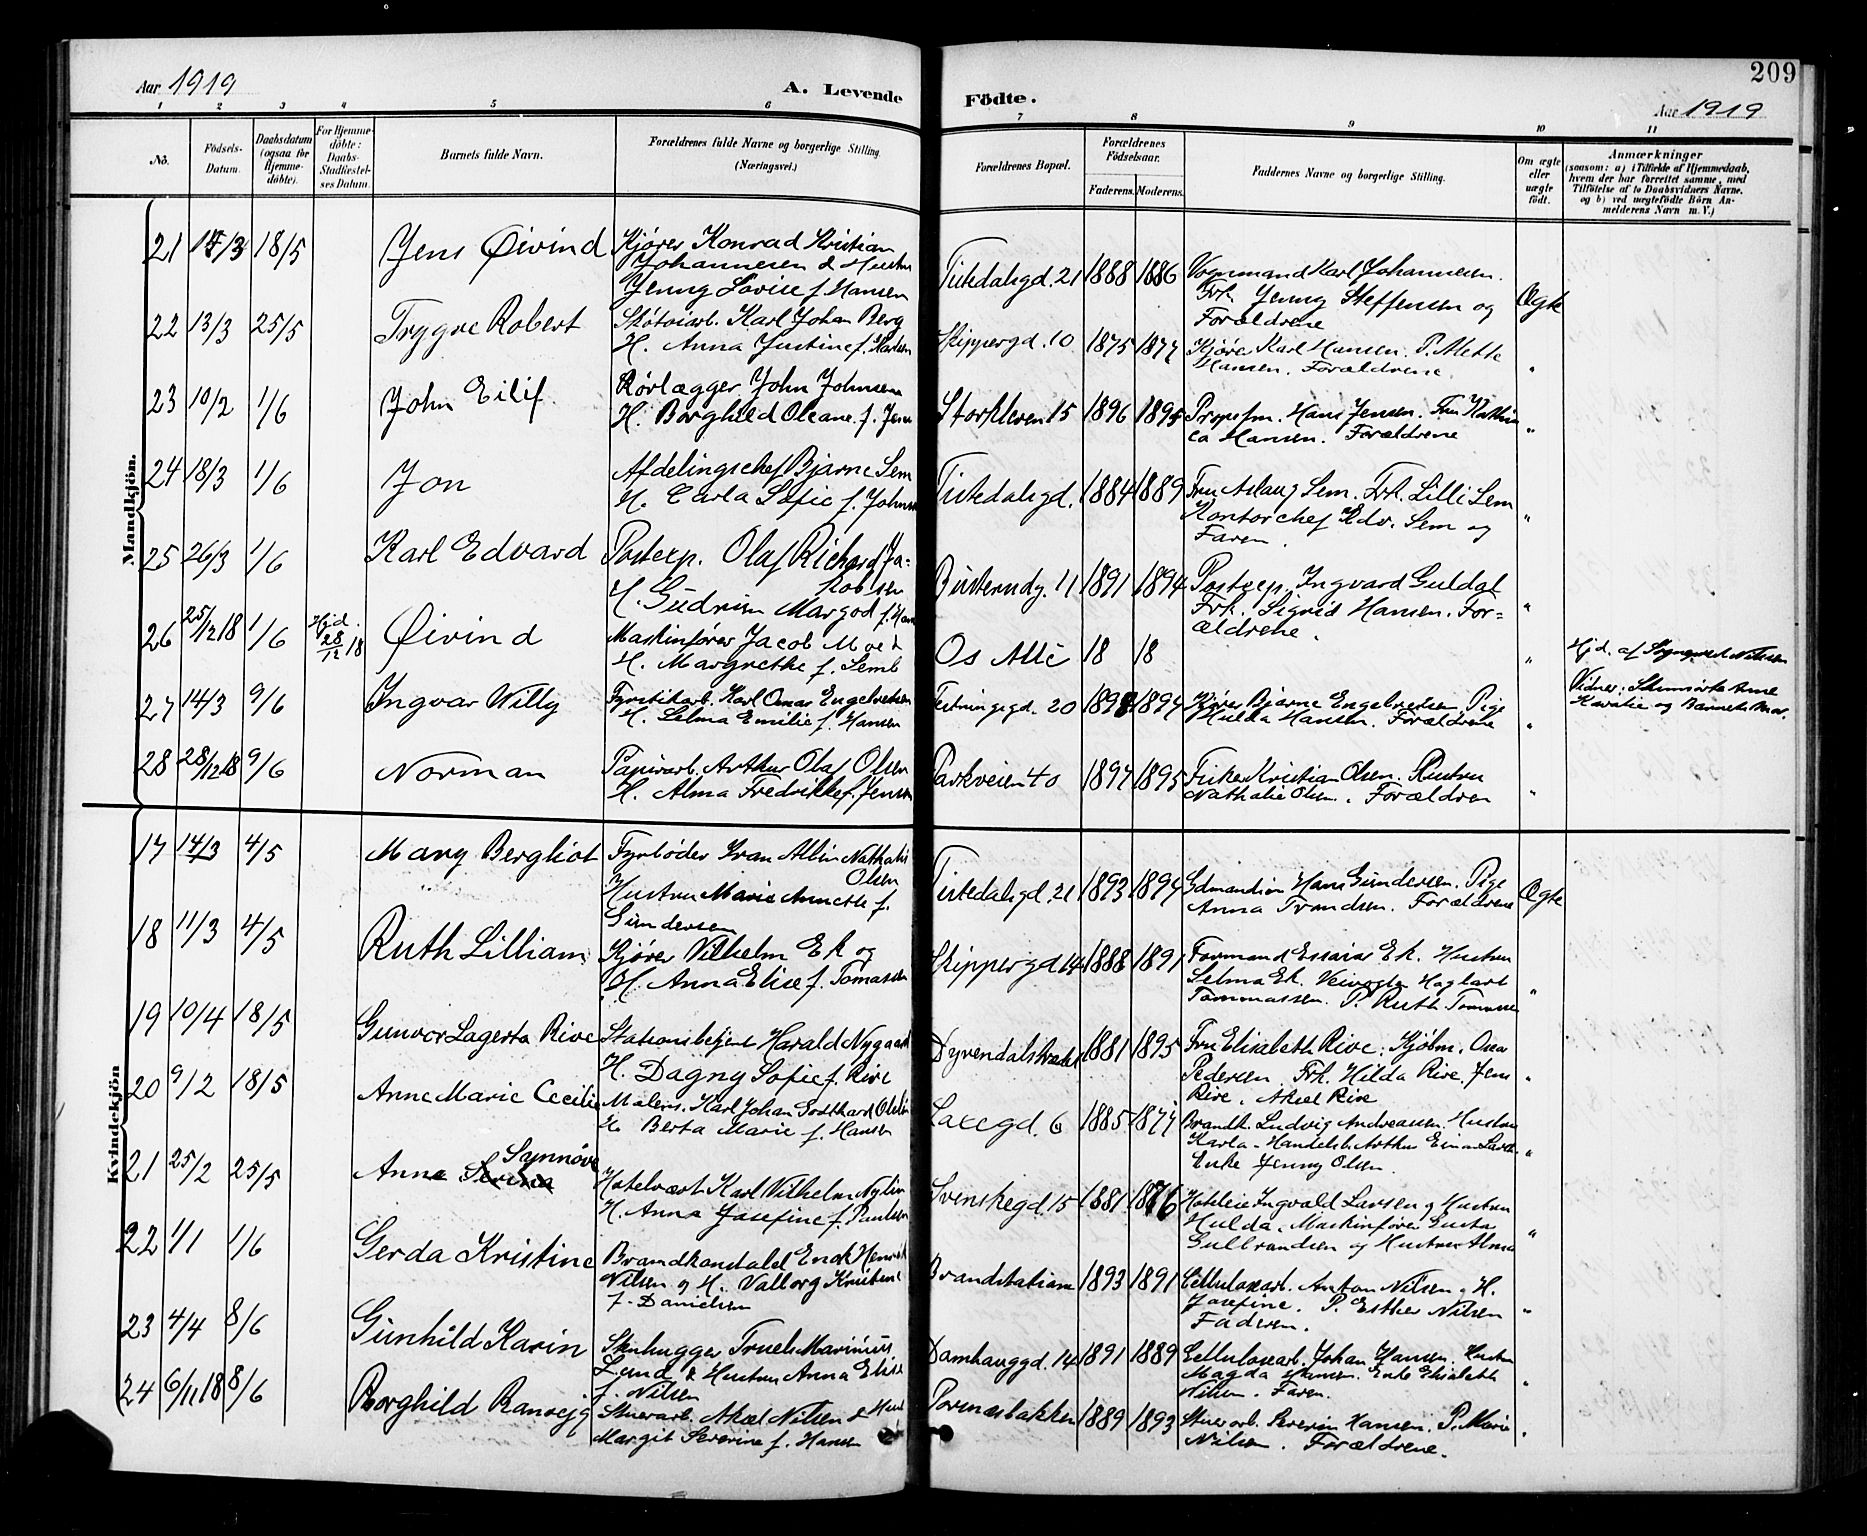 209
Aar 1919
A. Levende Födte.
Aar 1919
1 2 3 4 5 6 7 8 9 10 11
No. Födsels-Datum. Daabsdatum (ogsaa for Hjemme-döbte). For Hjemme-döbte: Daabs-Stadfæstel-ses Datum. Barnets fulde Navn. Forældrenes fulde Navne og borgerlige Stilling (Næringsvei.) Forældrenes Bopæl. Forældrenes Födselsaar. Faderens. Moderens. Faddernes Navne og borgerlige Stilling. Om ægte eller uægte födt. Anmærkninger
(saasom: a) i Tilfælde af Hjemmedaab,
hvem der har forrettet samme, med
Tilföielse af to Daabsvidners Navne.
og b) ved uægtefödte Börn An-
melderens Navn m. V.)
Mandkjön.
21 15/3 18/5 Jens Øivind Kjører Konrad Kristian
Johannesen & Hustru
Jenny Lovise f. Hansen
Tistedalsgd. 21 1888 1886 Vognmand Karl Johannesen.
Frk. Jenny Steffensen og
Forældrene
Ægte
22 13/3 25/5 Trygve Robert Skotøiarb. Karl Johan Berg
H. Anna Justine f. Karlsen
Skippergd. 10 1875 1877 Kjører Karl Hansen. P. Mette
Hansen. Forældrene.
"
23 10/2 1/6 John Eilif Rørlægger John Johnsen
H. Borghild Oleane f. Jensen
Storkleven 15 1896 1895 Hans Jensen. Fru
Hansen. Forældrene
"
24 18/3 1/6 Jon Afdelingschef Bjarne Sem
H. Carla Sofie f. Johnsen
Tistedalsgd. 1884 1889 Fru Aslaug Sem. Frk. Lilli Sem
Kontorchef Edv. Sem og
Faren.
"
25 26/3 1/6 Karl Edvard Postexp. Olaf Richard Ja-
kobsen
H. Gudrun Margod f. Han
11 1891 1894 Postexp. Ingvard Guldal
Frk. Sigrid Hansen. For-
ældrene.
"
26 25/12 18 1/6 Hjd. 28/12 18 Øivind Maskinfører Jacob Moe &
H. Margrethe f. Lemb
Os Alle 18 18
"
Hjd. af Sognepr. Nilssen
Vidner: Anne
og Barnets Mor.
27 14/3 9/6 Ingvar Willy Fyrstikarb. Karl Omar Engebretsen
H. Selma Emilie f. Hansen
Festningsgd. 20 1898 1897 Kjører Bjarne Engebretsen Pige
Hulda Hansen. Forældrene
"
28 28/12 18 9/6 Norman Papirarb. Arthur Olaf Olsen
H. Alma Fredrikke f. Jensen
Parkveien 40 1897 1895 Fisker Kristian Olsen. Hustru
Nathalie Olsen. Forældren
"
Kvindekjön
17 14/3 4/5 Mary Bergliot Fyrbøder Ivan Albin Nathalis
Olsen
Hustru Marie Annette f.
Gundersen
Tistedalsgd. 21 1893 1894 Gdmandsøn Hans Gundersen. Pige
Anna Trondsen. Forældrene
Ægte
18 11/3 4/5 Ruth Lilliam Kjører Vilhelm Ek og
H. Anna Elise f. Tomassen
Skippergd 14 1888 1891 Formand Essaias Ek. Hustru
Selma Ek. Veivogter
Tommassen. P. Ruth
"
19 10/4 18/5 Gunvor Lagerta Rive Stationsbetjent Harald Nygaard
H. Dagny Sofie f. Rive
Dyrendalstrædet 1881 1895 Fru Elisabeth Rive. Kjøbm. Oscar
Pedersen. Frk. Hilda Rive. Jens
Rive. Aksel Rive
"
20 9/2 18/5 Anne Marie Cecilie Malers. Karl Johan Godthard Olsen
H. Berta Marie f. Hansen
Laxegd. 6 1885 1877 Brandk. Ludvig Andreassen. Hustru
Karla. Handelsb. Arthur Larsen.
Enke Jenny Olsen.
"
21 25/2 25/5 Anna Synnøve
Hotelvært Karl Vilhelm Nylin
H. Anna Josefine f. Paulsen
Svenskegd. 15 1881 1876 Hoteleier Ingvald Larsen og Hustru
Hulda. Maskinfører Gusta
Gulbrandsen og Hustru Alma
"
22 1/1 1/6 Gerda Kristine Brandkonstabel Enok Henrik
Nilsen og H. Valborg Kristine
f. Danielsen
Brandstation 1893 1891 Cellulosearb. Anton Nilsen og H.
Josefine. P. Esther Nilsen
Faderen.
"
23 4/4 8/6 Gunhild Karin Stenhugger Truels Marinius
Lund & Hustru Anna Elise
f. Nilsen
Damhauggd. 14 1891 1889 Cellulosearb. Johan Hansen. Hustru
Magda Hansen. Enke Elisabeth
Nilsen. Faren.
"
24 6/11 18 8/6 Borghild Ranveig Stuerarb. Aksel Nilsen & Hust
Margit Severine f. Hansen
Pormesbakken 1889 1893 Stuerarb. Severin Hansen. P. Marie
Nilsen. Forældrene.
"